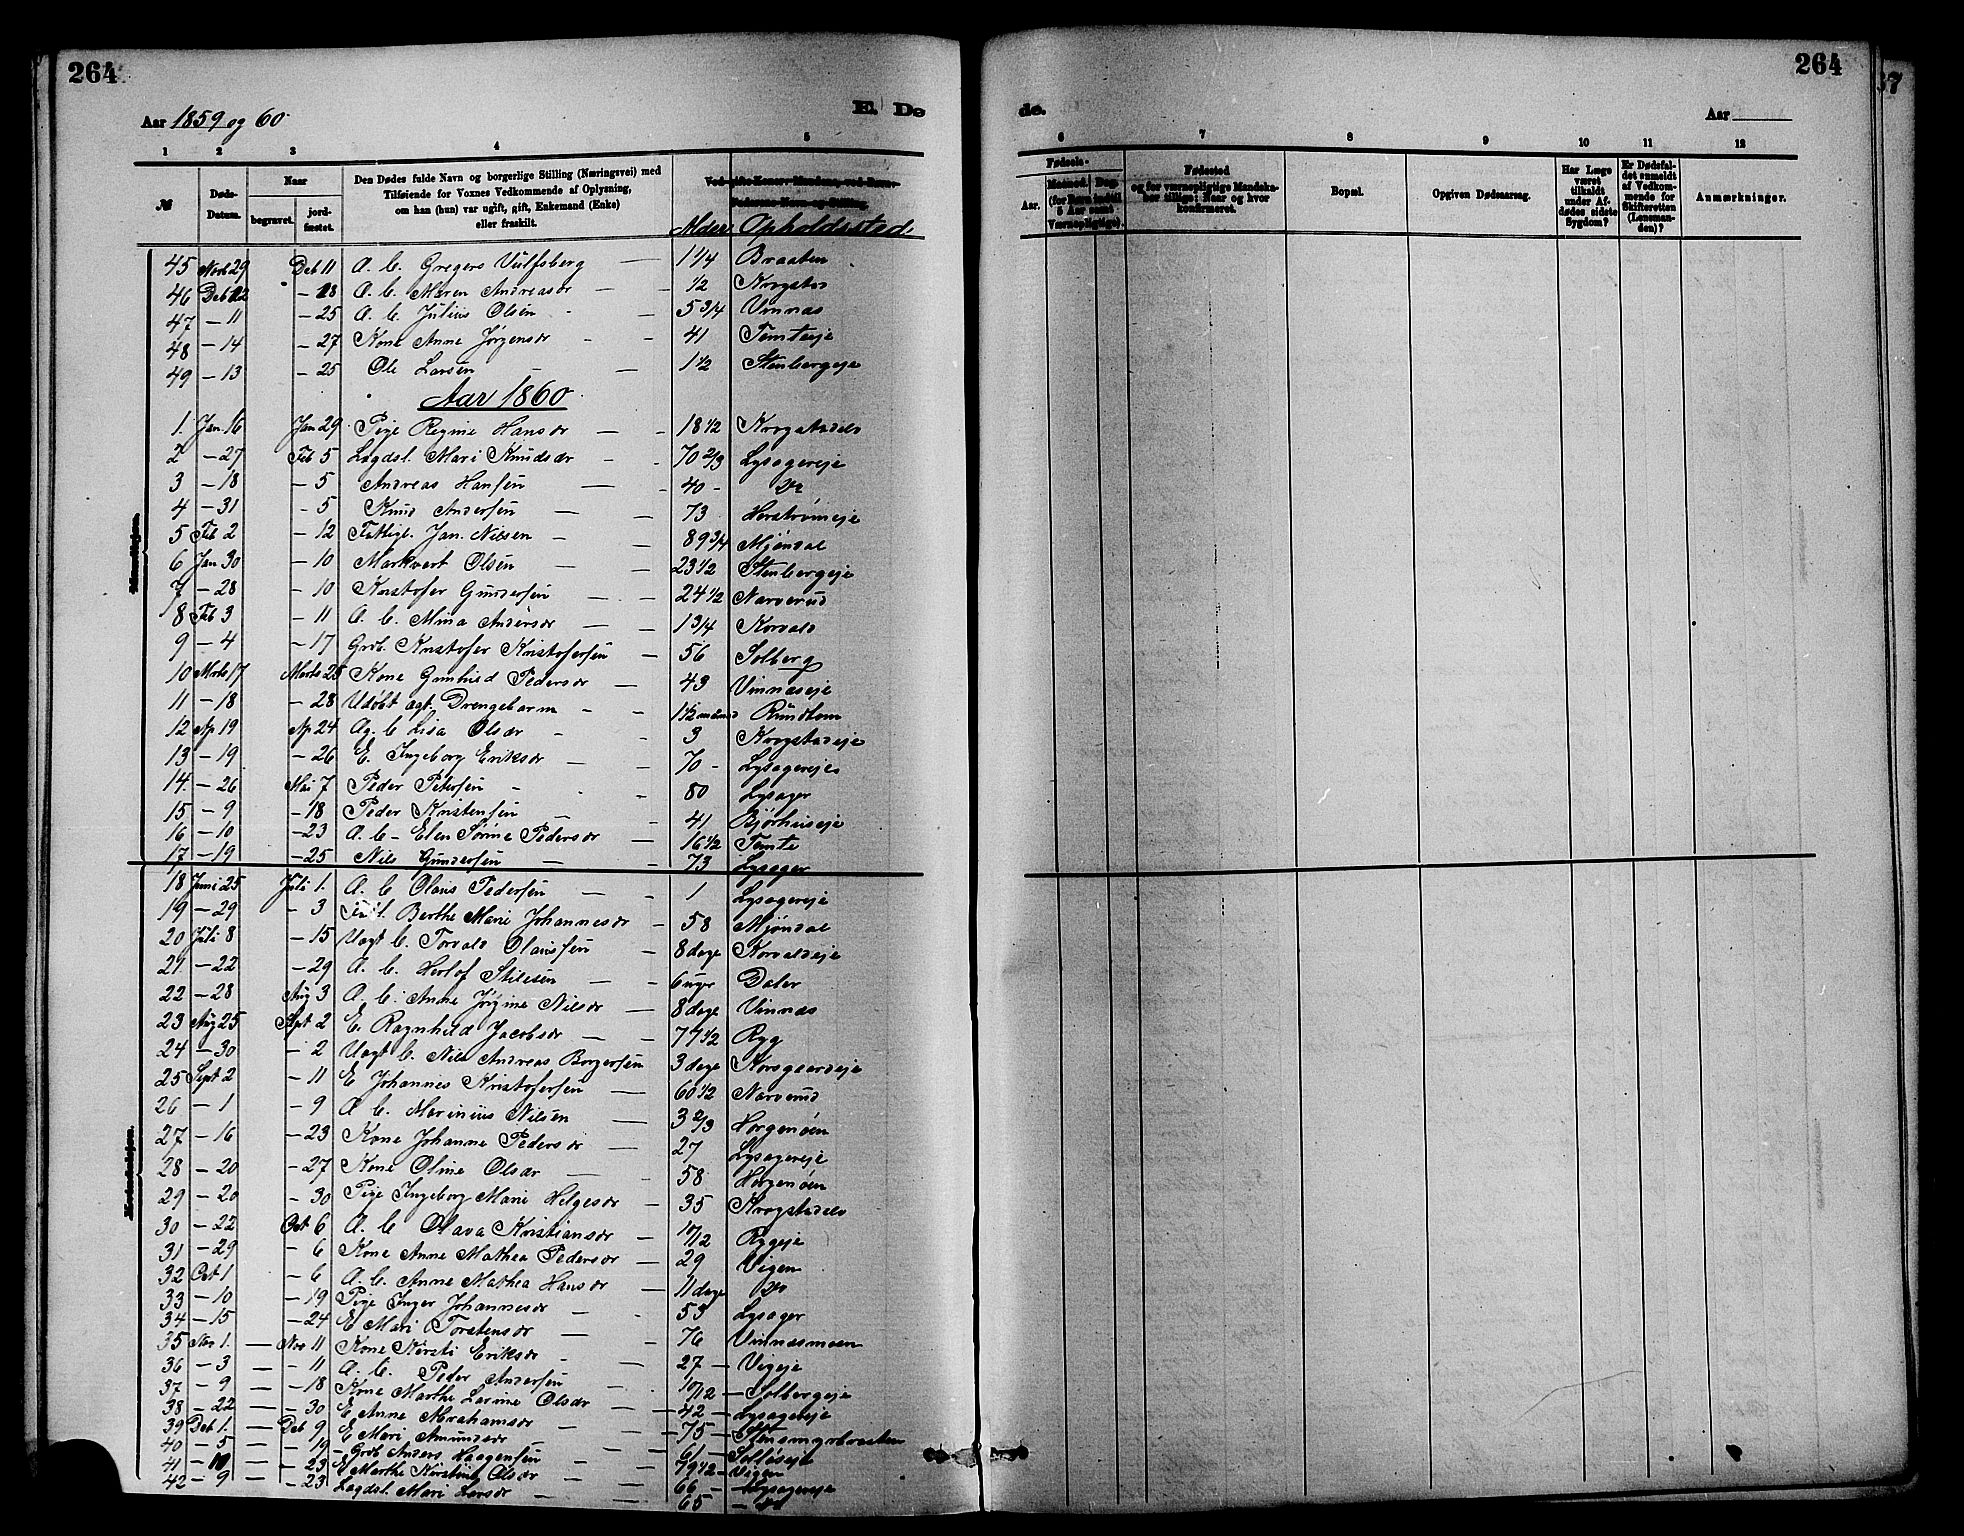 264
264
37
Aar 1859 og 60
E. Dø
de.
Aar
1 2 3 4 5
6 7 8 9 10 11 12
№
Døds-Datum.
Naar
begravet.
jord-fæstet.
Den Dødes fulde Navn og borgerlige Stilling (Næringsvei) med
Tilføiende for Voxnes Vedkommende af Oplysning,
om han (hun) var ugift, gift, Enkemand (Enke)
eller fraskilt.
Alder Opholdssted
Fødsels-
Aar.
Maaned. Dag.
(for Børn indtil
5 Aar samt
Værnepligtige).
Fødested
og for værnepligtige Mandskaber
tillige: Naar og hvor
konfirmeret.
Bopæl.
Opgiven Dødsaarsag.
Har Læge
været
tilkaldt
under Af-
dødes sidste
Sygdom?
Er Dødsfaldet
anmeldt
af Vedkommende
for
Skifteretten
(Lensmanden)?
Anmærkninger.
Mandkjøn.
Kvindekjøn.
45 Novb 29 Deb 11 A. C. Gregers Vulfsberg 1 1/4 Braaten
46 Deb 12 - 18 A. C. Maren Andreasdr 1/2 Krogstad
47 - 11 - 25 A. C. Julius Olsen 5 3/4 Vinnas
48 - 14 - 27 Kone Anne Jørgensdr 41 Temteeje
49 - 13 - 25 Ole Larsen 1 1/2 Stenbergeje
Aar 1860
1. Jan. 16 Jan 29 Pige Regine Hansdr 18 1/2 Krogstadels
2 - 27 Feb 5 Lægdsl. Mari Knudsdr 70 2/3 Lysagereje
3 - 18 - 5 Andreas Hansen 40 - Do
4 - 31 - 5 Knud Andersen 73 Herstrømeje
5 Feb 2 - 12 Fattigl. Jan. Nilsen 89 3/4 Mjøndal
6 Jan 30 - 10 Markvert Olsen 23 1/2 Stenbergeje
7 - 28 - 10 Kristofer Gundersen 24 1/2 Narverud
8 Feb 3 - 11 A. C. Mina Andersdr 1 3/4 Korvald
9 - 4 - 17 Grdb. Kristofer Kristofersen 56 Solberg
10 Marts 17 Marts 25 Kone Gunhild Pedersdr 43 Vinnaseje
11 - 18 - 28 Udøbt ægt. Drengebarn 1 1/2 maaned Rundtom
12 Ap 19 Ap 24 Æg. C Lisa Olsdr 3 Krogstadeje
13 - 19 - 26 E. Ingeborg Eriksdr 70 - Lysagereje
14. - 26 Mai 7 Peder Petersen 80 Lysager
15 - 9 - 18 Peder Kristensen 41 Bjørhuseje
16 - 10 - 23 A. C - Elen Sørine Pedersdr 16 1/2 Temte
17 - 19 - 25 Nils Gundersen 73 Lysager
18 Juni 25 Juli 1. A. C Olaus Pedersen 1 Lysagereje
19 - 29 - 3 Berthe Marie Johannesdr 58 Mjøndal
20 Juli 8 - 15 Uægt C. Torvald Olaussen 8 dage Korvaldeje
21. - 22 - 29 A. C. Herlof Stilesen 6 uger Daler
22 - 28 Aug 3 A. C. Anne Jørgine Nilsdr 8 dage Vinnas
23 Aug 25 Sept 2 E. Ragnhild Jacobsdr 77 1/2 Ryg
24 - 30 - 2 Uægt C. Nils Andreas Borgersen 3 dage Korsgaardeje
25 Sept 2 - 11 E Johannes Kristofersen 60 1/2 Narverud
26 - 1 - 9 A. C. Marinius Nilsen 3 2/3 Horgenøen
27 - 16 - 23 Kone Johanne Pedersdr 27 Lysagereje
28 - 20 - 27 Kone Oline Olsdr 58 Horgenøen
29 - 20 - 30 Pige Ingeborg Marie Helgesdr 35 Krogstadels
30 - 22 Oct 6 A. C. Olava Kristiansdr 10/12 Rygeje
31 - 29 - 6 Kone Anne Mathea Pedersdr 29 Vigen
32 Oct 1 - 6 A. C. Anne Mathea Hansdr 11 dage Do
33 - 10 - 19 Pige Inger Johannesdr 53 Lysager
34 - 15 - 24 E Mari Torstensdr 76 Vinnasmoen
35 Nov 1. Nov 11 Kone Kirsti Eriksdr 27 Vigeje
36 - 3 - 11 A. C. Peder Andersen 10/12 Solbergeje
37 - 9 - 18 Kone Marthe Larine Olsdr 42 Lysagereje
38 - 22 - 30 E Anne Abrahamsdr 75
39 Deb 1. Deb 9 E Mari Amundsdr 61
40 - 5 - 19 Grdb Anders Haagensen 79 1/2 Vigen
41 - 10 - 23 E Marthe Kirstine Olsdr 66 Lysagereje
42 - 9 - 23 Lægdsl. Mari Larsdr 65 Do